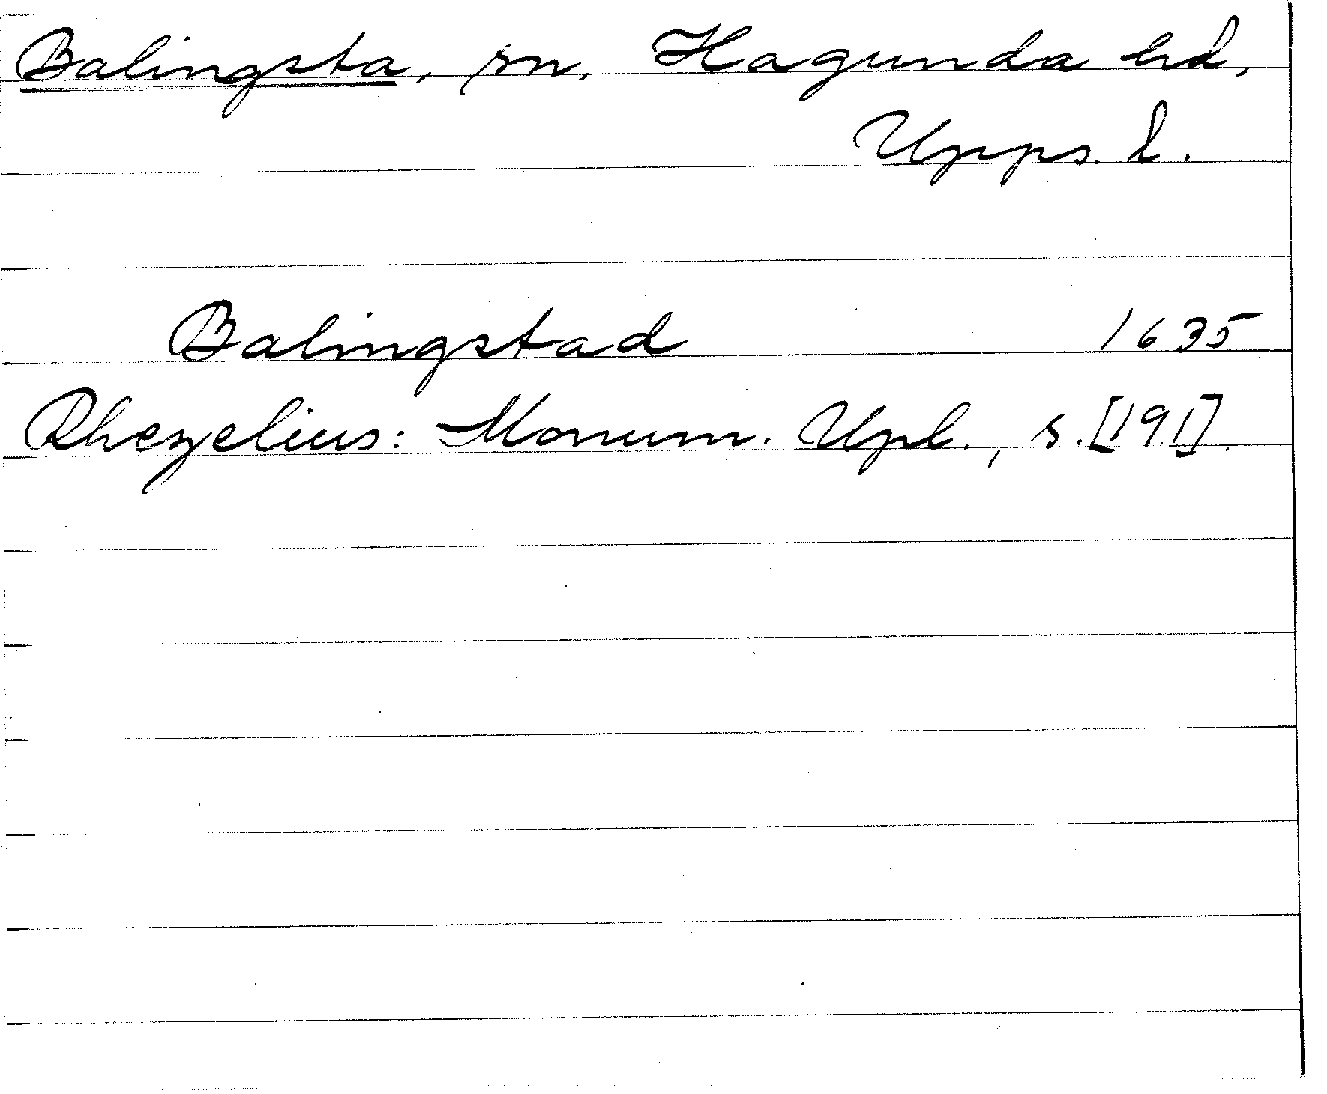 Balingsta, sn, Hagunda hd,
Upps. l.
Balingstad 1635
Rhezelius: Monum. Upl., s. [191].